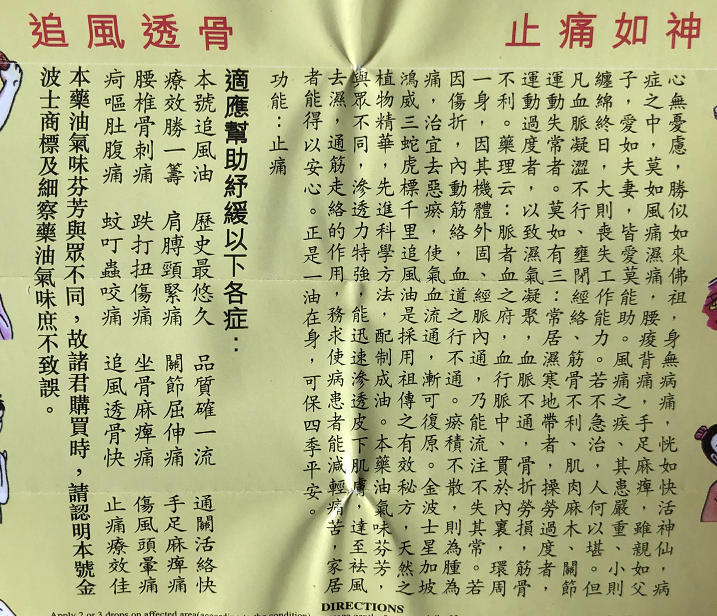 追風透骨
止痛如神
心無憂慮，勝似如來佛祖，身無病痛，恍如快活神仙，病
症之中，莫如風痛濕痛，腰痠背痛，手足麻痺，雖親如父
子，愛如夫妻，皆愛莫能助。風痛之疾、其患嚴重、小則
纏綿終日，大則喪失工作能力。若不急治，人何以堪。但
凡血脈凝澀不行、壅閉經絡、筋骨不利、肌肉麻木、關節
運動失常者。莫如有三：常居濕寒地帶者，操勞過度者，
運動過度者，以致濕氣凝聚，血脈不通，骨折勞損，筋骨
不利。藥理云：脈者血之府，血行脈中、貫於內裏，環周
一身，因其機體外固、經脈內通，乃能流注不失其常。若
因傷折，內動筋絡，血道之行不通。瘀積不散，則為腫為
痛，治宜去惡瘀，使氣血流通，漸可復原。金波士星加坡
鴻威三蛇虎標千里追風油是採用祖傳之有效秘方，天然之
植物精華，先進科學方法，配制成油。本藥油氣味芬芳，
與眾不同，滲透力特強，能迅速滲透皮下肌膚，達至祛風
去濕，通筋走絡的作用，務求使病患者能減輕痛苦，家居
者能得以安心。正是一油在身，可保四季平安。
功能：止痛
適應幫助紓緩以下各症：
本號追風油 歷史最悠久 品質確一流 通關活絡快
療效勝一籌 肩膊頸緊痛 關節屈伸痛 手足麻痺痛
腰椎骨刺痛 跌打扭傷痛 坐骨麻痺痛 傷風頭暈痛
疴嘔肚腹痛 蚊叮蟲咬痛 追風透骨快 止痛療效佳
本藥油氣味芬芳與眾不同，故諸君購買時，請認明本號金
波士商標及細察藥油氣味庶不致誤。
DIRECTIONS
Apply 2 or 3 drops on affected area